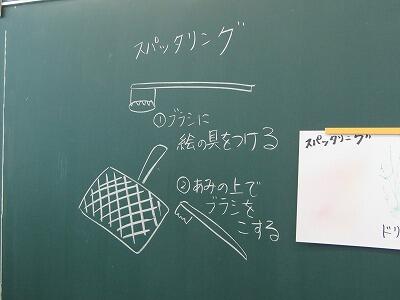 スパッタリング
①ブラシに
絵の具をつける
②あみの上で
ブラシを
こする
スパッタリング
ドリ